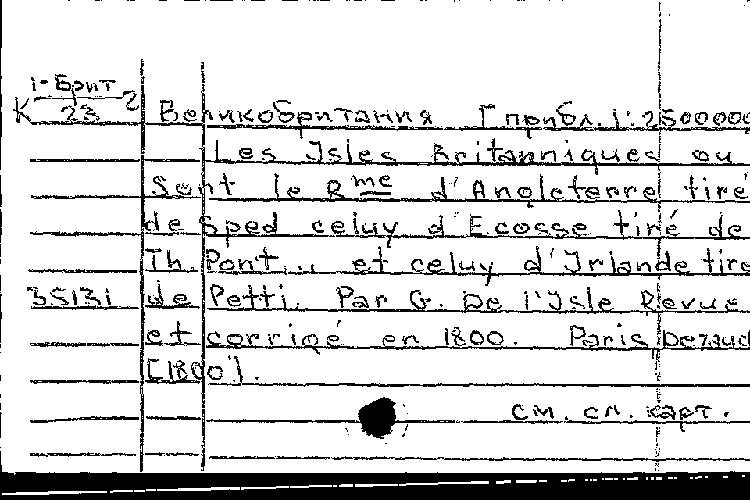 1-Брит
К 23 2
Великобритания [прибл. 1:2500000
Les Isles Britanniques ou
Sont le Rme d'Angleterre tiré
de Sped celuy d'Ecosse tiré de
Th. Pont... et celuy d'Irlande tire
35131 de Petti. Par G. De l'Isle Revue
et corrigé en 1800. Paris, Dezaud
[1800].
см. сл. карт.